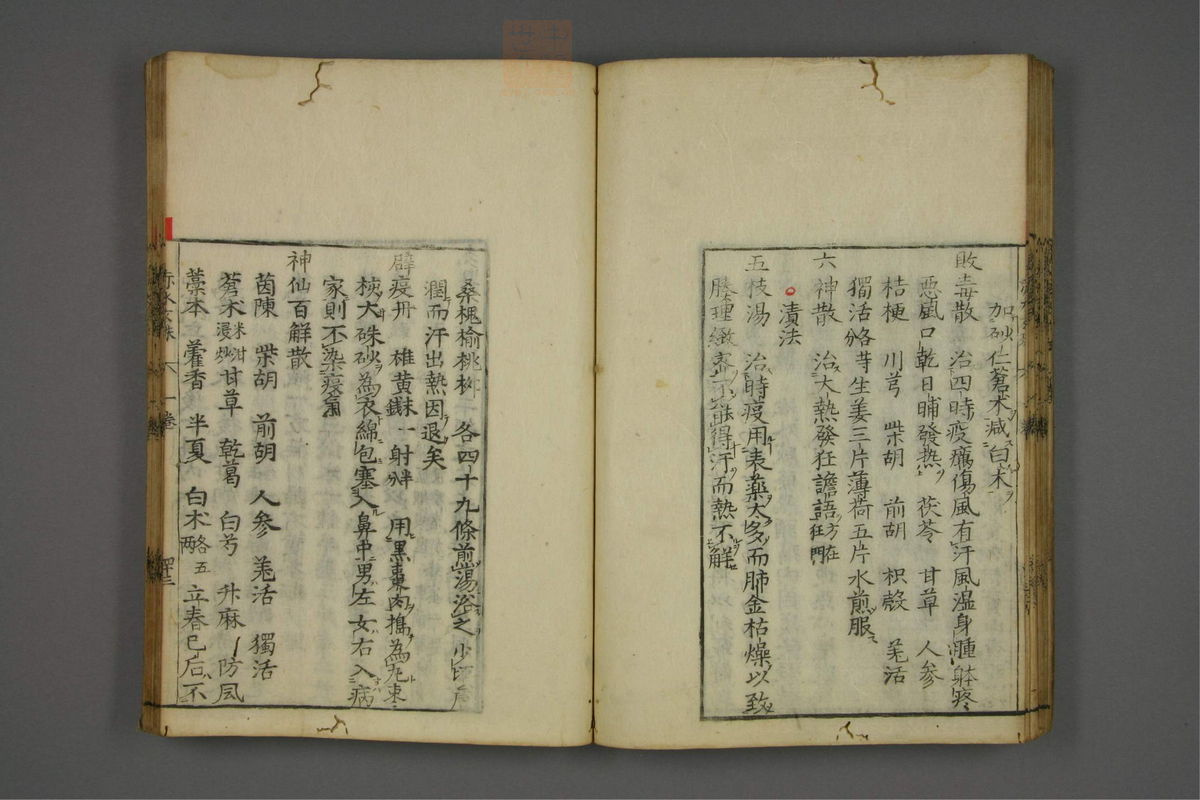 加砂仁蒼朮減白朮
敗毒散 治四時疫癘傷風有汗風温身腫躰疼
悪風口乾日晡發熱 茯苓 甘草 人参
桔梗 川芎 柴胡 前胡 枳殼 羌活
獨活各等分 生姜三片薄荷五片水煎服
六神散 治大熱發狂譫語方在狂門
漬法
五枝湯 治時疫用表藥太多而肺金枯燥以致
腠理緻密不能得汗而熱不解
桑槐榆桃柳 各四十九條煎湯浴之少頃
潤而汗出熱因退矣
辟疫丹 雄黄 一 射 半 用黒棗肉搗為丸棗
核大硃砂為衣綿包塞入鼻中男左女右入病
家則不染疫氣
神仙百解散
茵陳 柴胡 前胡 人参 羌活 獨活
蒼朮米泔浸炒 甘草 乾葛 白芍 升麻 防風
藁本 藿香 半夏 白朮各五両 立春已后不
赤水玄珠 一卷